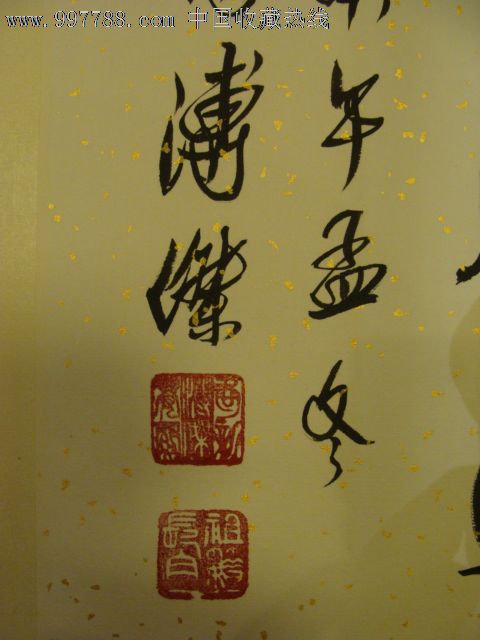 www.997788.com 中国收藏热线
午孟冬
溥傑
祖籍長白